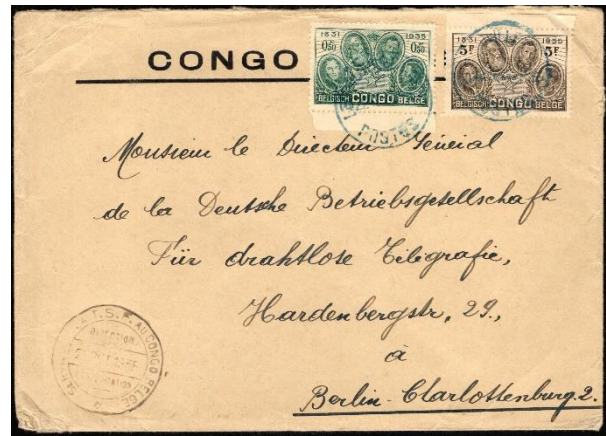 CONGO
1831 1935
0,50 0,50
BELGISCH CONGO BELGE
1831 1935
5F 5F
BELGISCH CONGO BELGE
POSTES
Monsieur le Directeur Général
de la Deutsche Betriebsgesellschaft
Für drahtlose Telegrafie,
Hardenbergstr, 29.,
à
Berlin-Charlottenburg 2.
T.S.F. AU CONGO BELGE
DIRECTION